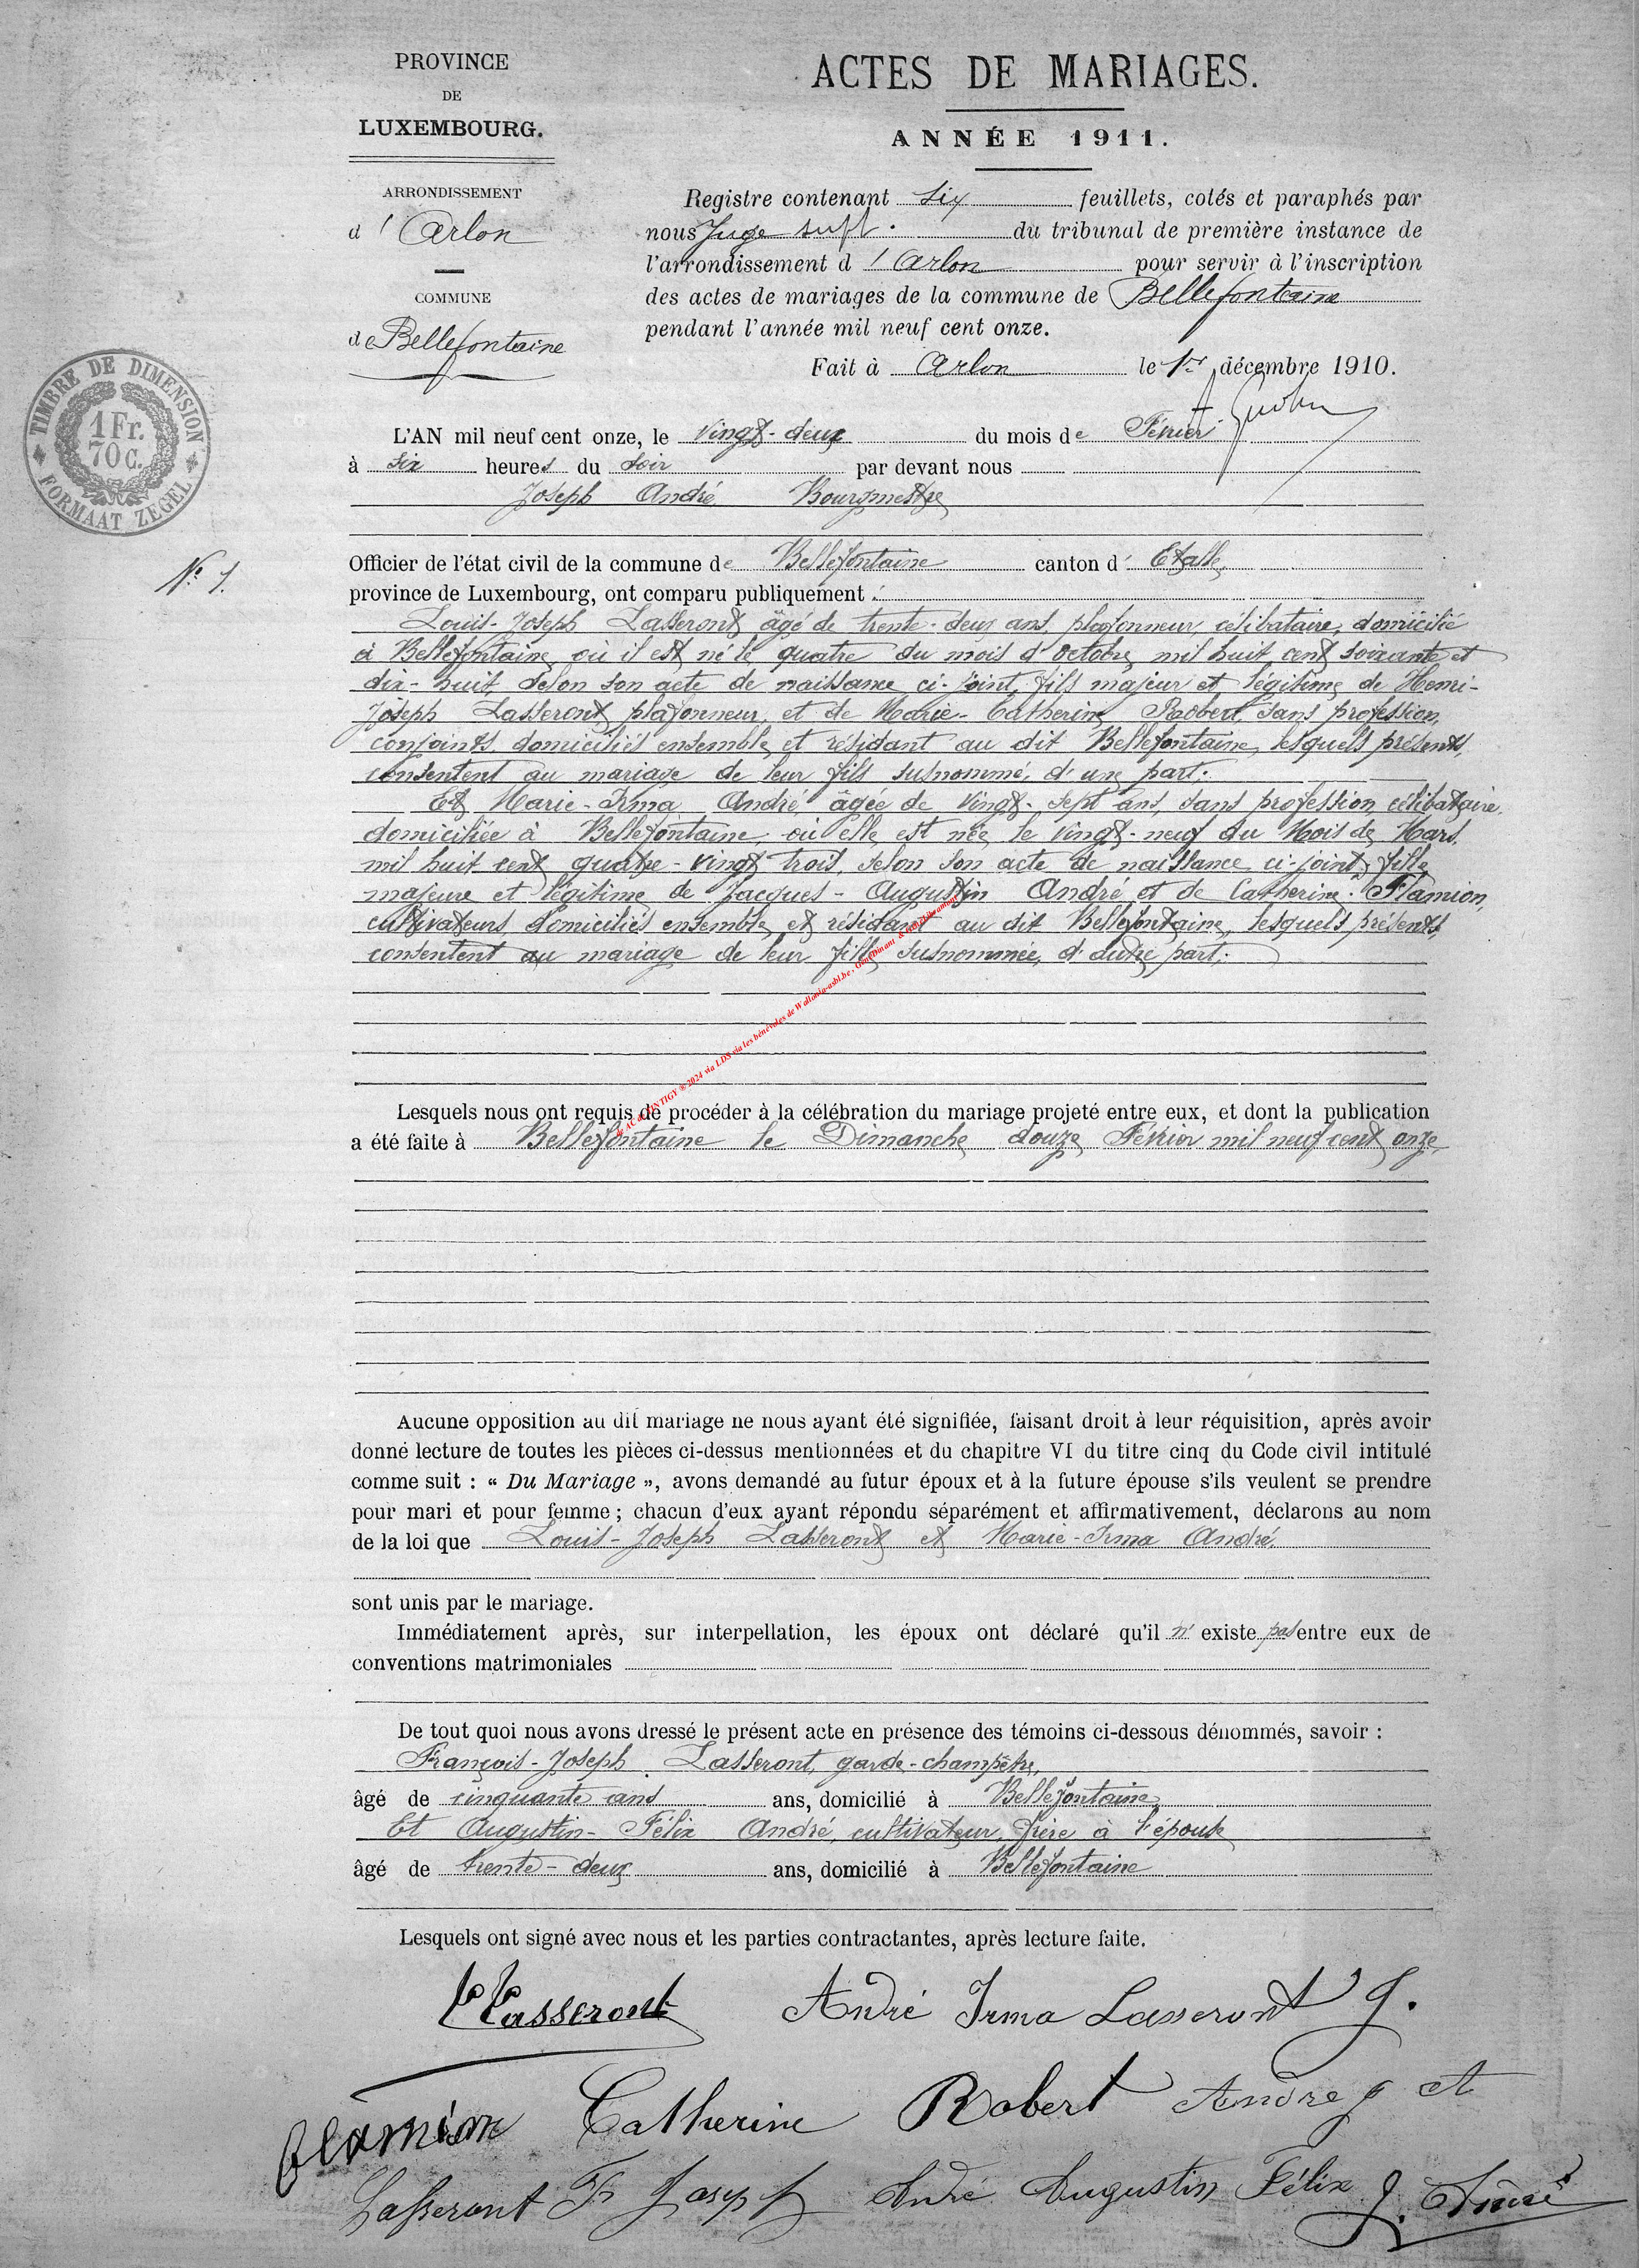 PROVINCE
DE
LUXEMBOURG.
ARRONDISSEMENT
d'Arlon
COMMUNE
de Bellefontaine
ACTES DE MARIAGES.
ANNÉE 1911.
Registre contenant six feuillets, cotés et paraphés par
nous Juge supt. du tribunal de première instance de
l'arrondissement d'Arlon pour servir à l'inscription
des actes de mariages de la commune de Bellefontaine
pendant l'année mil neuf cent onze.
Fait à Arlon le 1er décembre 1910.
TIMBRE DE DIMENSION
1 Fr.
70 c.
FORMAAT ZEGEL
N° 1.
L'AN mil neuf cent onze, le vingt-deux du mois de Février
à six heures du soir par devant nous
Joseph André Bourgmestre
Officier de l'état civil de la commune de Bellefontaine canton d'Etalle
province de Luxembourg, ont comparu publiquement :
Louis-Joseph Lasseront âgé de trente-deux ans, plafonneur, célibataire, domicilié
à Bellefontaine où il est né le quatre du mois d'octobre mil huit cent soixante et
dix-huit selon son acte de naissance ci-joint, fils majeur et légitime de Henri-
Joseph Lasseront, plafonneur, et de Marie-Catherine Robert, sans profession,
conjoints domiciliés ensemble, et résidant au dit Bellefontaine, lesquels présents,
consentent au mariage de leur fils susnommé, d'une part.
Et Marie-Irma André âgée de vingt-sept ans, sans profession, célibataire,
domiciliée à Bellefontaine où elle est née le vingt-neuf du Mois de Mars
mil huit cent quatre-vingt trois, selon son acte de naissance ci-joint, fille
majeure et légitime de Jacques-Augustin André et de Catherine Flamion,
cultivateurs, domiciliés ensemble, et résidant au dit Bellefontaine, lesquels présents,
consentent au mariage de leur fille susnommée, d'autre part.
de AC de TINTIGY ® 2024 via LDS via les bénévoles de Wallonia-asbl.be, Geneanet &
Lesquels nous ont requis de procéder à la célébration du mariage projeté entre eux, et dont la publication
a été faite à Bellefontaine le Dimanche douze Février mil neuf cent onze,
Aucune opposition au dit mariage ne nous ayant été signifiée, faisant droit à leur réquisition, après avoir
donné lecture de toutes les pièces ci-dessus mentionnées et du chapitre VI du titre cinq du Code civil intitulé
comme suit : « Du Mariage », avons demandé au futur époux et à la future épouse s'ils veulent se prendre
pour mari et pour femme ; chacun d'eux ayant répondu séparément et affirmativement, déclarons au nom
de la loi que Louis-Joseph Lasseront et Marie-Irma André.
sont unis par le mariage.
Immédiatement après, sur interpellation, les époux ont déclaré qu'il n'existe pas entre eux de
conventions matrimoniales
De tout quoi nous avons dressé le présent acte en présence des témoins ci-dessous dénommés, savoir :
François-Joseph Lasseront, garde-champêtre,
âgé de cinquante ans ans, domicilié à Bellefontaine,
Et Augustin-Félix André, cultivateur, frère à l'épouse
âgé de trente-deux ans, domicilié à Bellefontaine
Lesquels ont signé avec nous et les parties contractantes, après lecture faite.
L Lasseront André Irma Lasseront J.
flamion Catherine Robert André J at
Lasseront Fr Joseph André Augustin Félix J. André